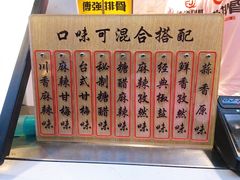 傳強排骨
口味可混合搭配
川香麻辣味
麻辣甘梅味
台式甘梅味
秘制糖醋味
糖醋麻辣味
麻辣孜然味
經典椒鹽味
鮮香孜然味
蒜香原味